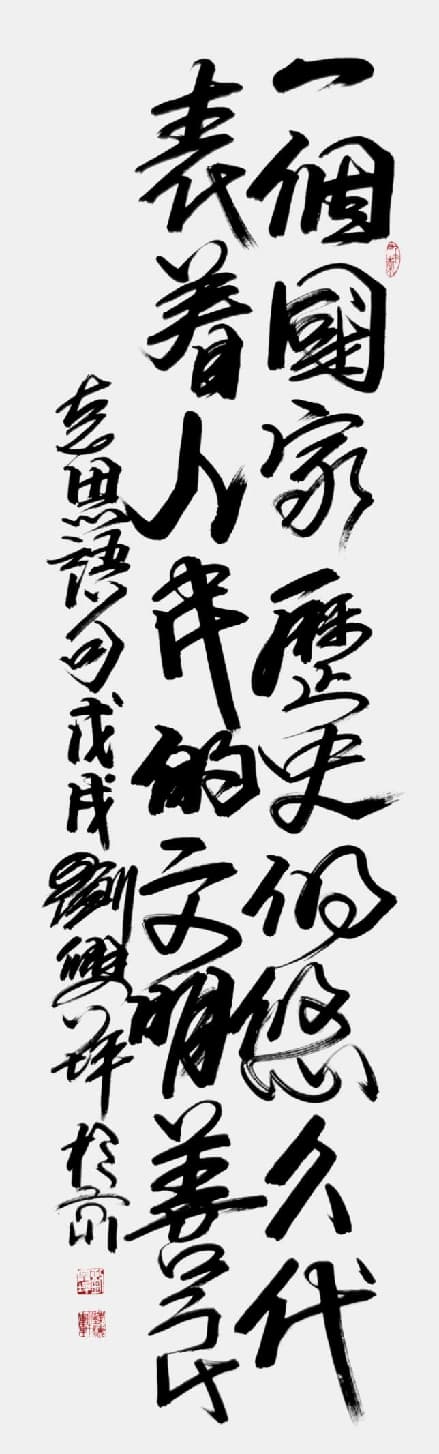 一個國家歷史的悠久代
表着人民的文明善
志思語句戊戌劉雙於